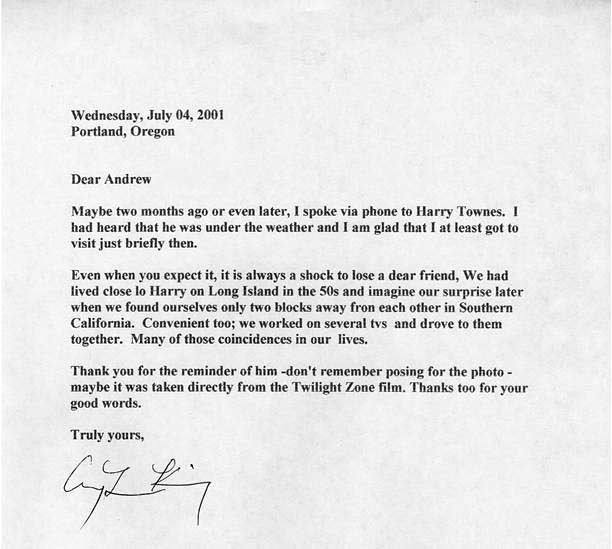 Wednesday, July 04, 2001
Portland, Oregon
Dear Andrew
Maybe two months ago or even later, I spoke via phone to Harry Townes. I
had heard that he was under the weather and I am glad that I at least got to
visit just briefly then.
Even when you expect it, it is always a shock to lose a dear friend, We had
lived close lo Harry on Long Island in the 50s and imagine our surprise later
when we found ourselves only two blocks away fron each other in Southern
California. Convenient too; we worked on several tvs and drove to them
together. Many of those coincidences in our lives.
Thank you for the reminder of him -don't remember posing for the photo -
maybe it was taken directly from the Twilight Zone film. Thanks too for your
good words.
Truly yours,